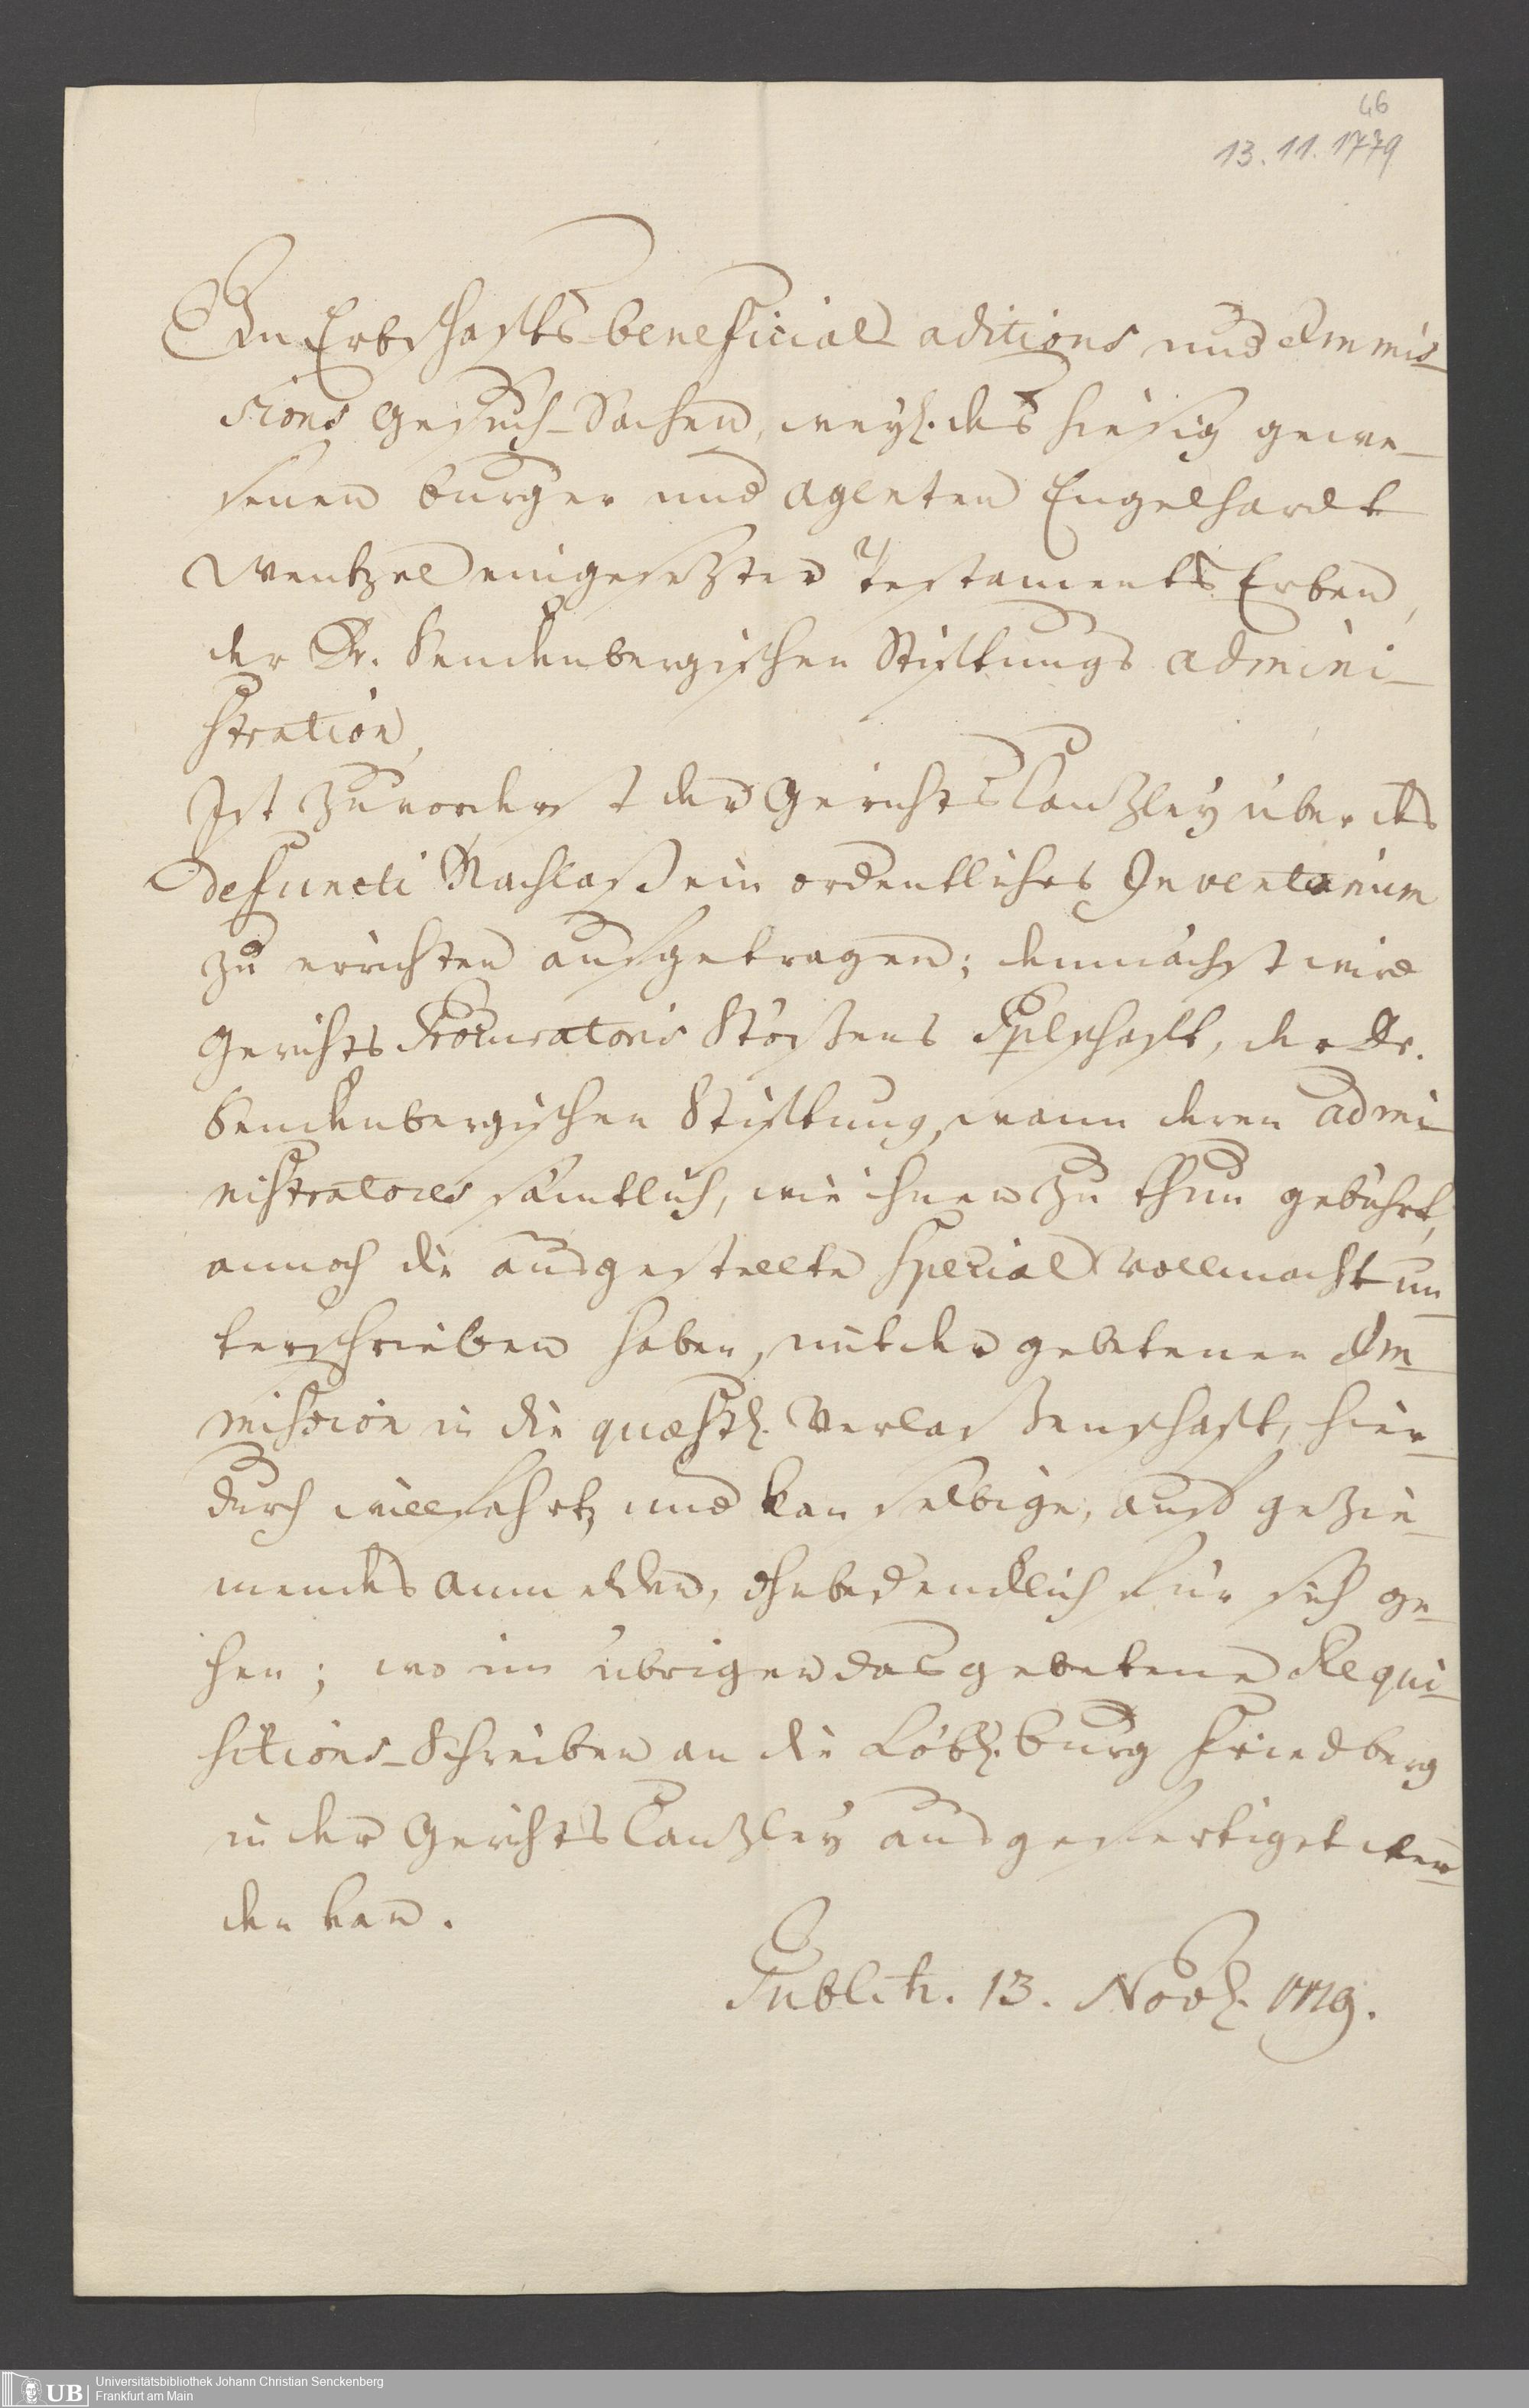 46
13.11.1779
In Erbschafts-beneficial aditions und Immis-
sions Gesuch-Sachen, weyl. des hiesig gewe-
senen burger und agenten Engelhardt
Wentzel eingesezter Testaments Erben,
der Dr. Senckenbergischen Stiftungs admini-
stration,
Ist zuvorderst der Gerichts Canzley über des
defuncti Nachlaß ein ordentliches Inventarium
zu errichten aufgetragen; demnächst wird
Gerichts Procuratoris Stößens Splschaft, der Dr.
Senckenbergischen Stiftung, wann deren admi-
nistratores sämtlich, wie ihnen zu thun gebührt,
annoch die ausgestellte special Vollmacht un-
terschrieben haben, mit der gebetenen Im-
mission in die quæstl. Verlaßenschaft, hier-
durch willfahrt, und kan selbige, auf gezie-
mendes anmelden, ohnbedencklich für sich ge-
hen; wo im übrigen das gebetene Requi-
sitions-Schreiben an die Löbl. burg Friedberg
in der Gerichts Canzley ausgefertiget wer-
den kan.
Publ. d. 13. Nov. 1779.
UB
Universitätsbibliothek Johann Christian Senckenberg
Frankfurt am Main